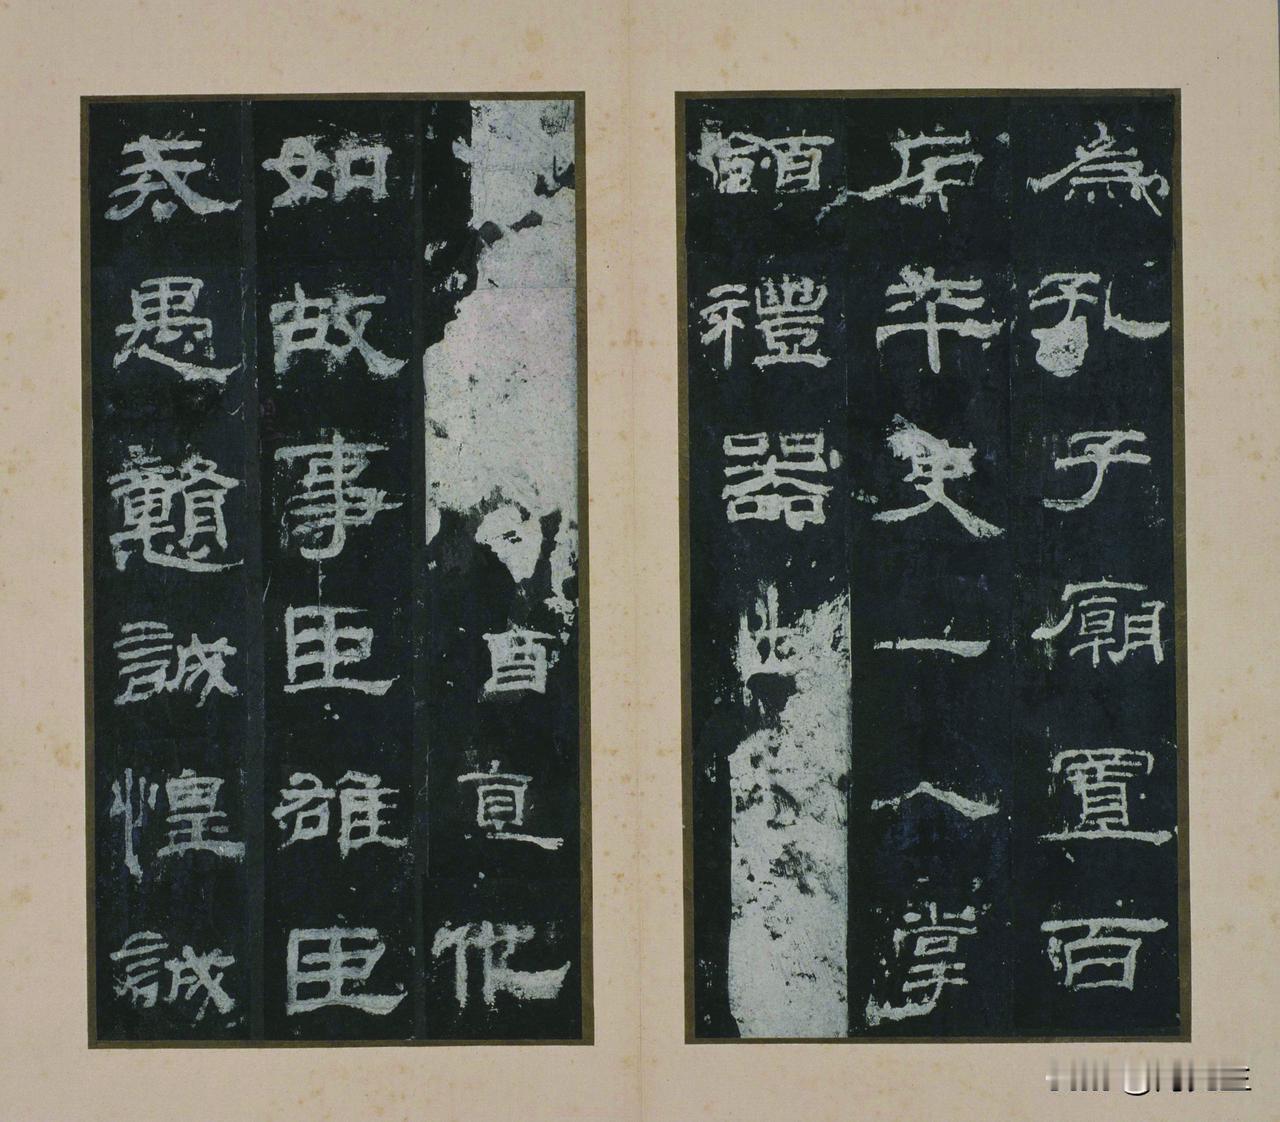 為孔子廟置百
卒史一人掌
領禮器出
酒直他
如故事臣雄臣
戒愚戇誠惶誠